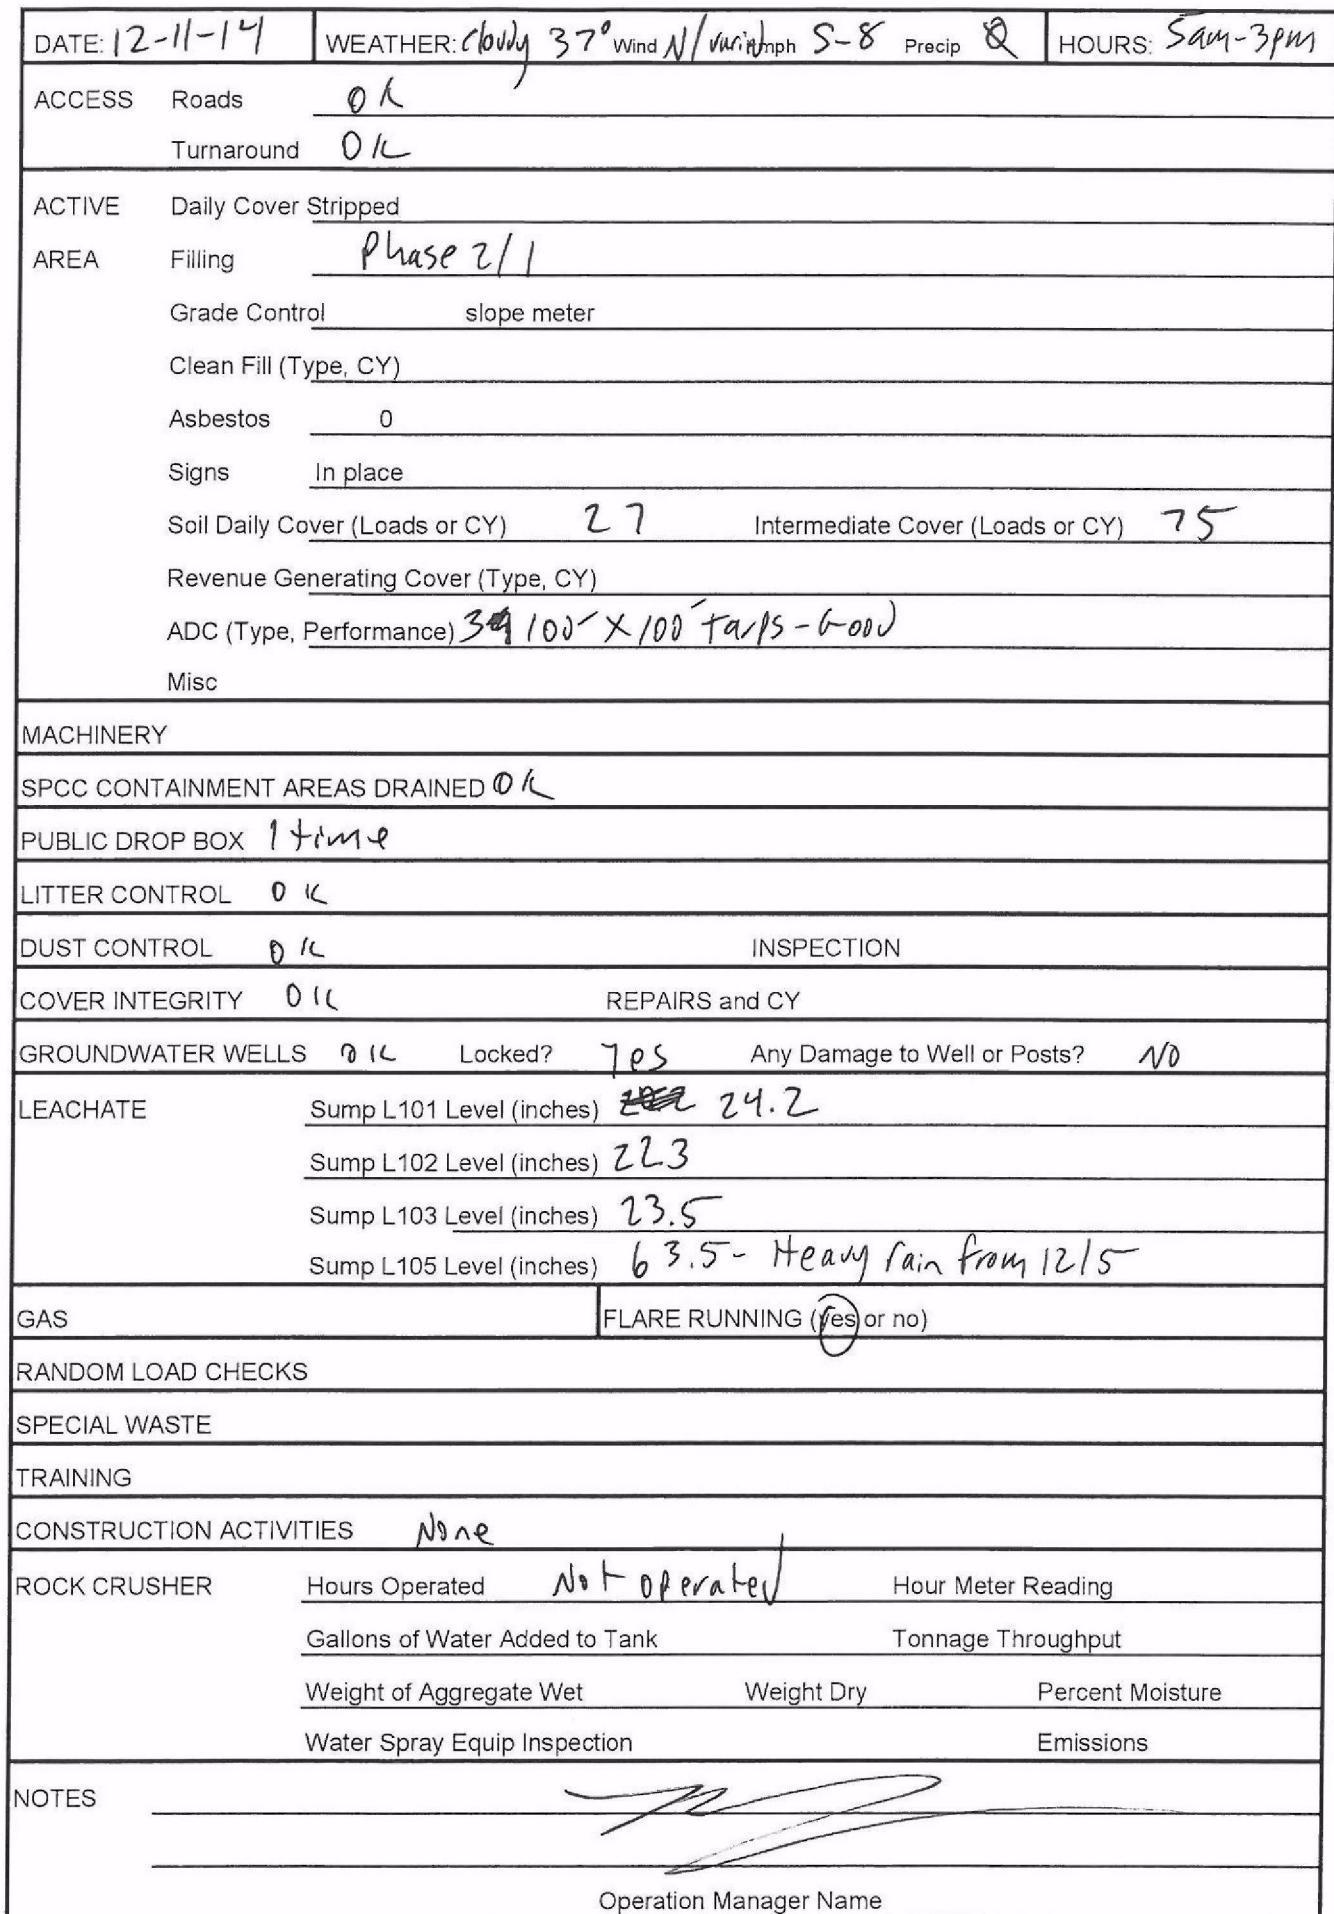 DATE: 12-11-14 WEATHER: Cloudy 37° Wind N/ mph 5-8 Precip 0 HOURS: 5am-3pm
ACCESS Roads OK
Turnaround OK
ACTIVE Daily Cover Stripped
AREA Filling Phase 2/1
Grade Control slope meter
Clean Fill (Type, CY)
Asbestos 0
Signs In place
Soil Daily Cover (Loads or CY) 27 Intermediate Cover (Loads or CY) 75
Revenue Generating Cover (Type, CY)
ADC (Type, Performance) 3 100' X 100' tarps - Good
Misc
MACHINERY
SPCC CONTAINMENT AREAS DRAINED OK
PUBLIC DROP BOX 1 time
LITTER CONTROL OK
DUST CONTROL OK INSPECTION
COVER INTEGRITY OK REPAIRS and CY
GROUNDWATER WELLS OK Locked? Yes Any Damage to Well or Posts? NO
LEACHATE Sump L101 Level (inches) 24.2
Sump L102 Level (inches) 22.3
Sump L103 Level (inches) 23.5
Sump L105 Level (inches) 63.5 - Heavy rain from 12/5
GAS FLARE RUNNING (yes or no)
RANDOM LOAD CHECKS
SPECIAL WASTE
TRAINING
CONSTRUCTION ACTIVITIES None
ROCK CRUSHER Hours Operated Not operated Hour Meter Reading
Gallons of Water Added to Tank Tonnage Throughput
Weight of Aggregate Wet Weight Dry Percent Moisture
Water Spray Equip Inspection Emissions
NOTES
Operation Manager Name